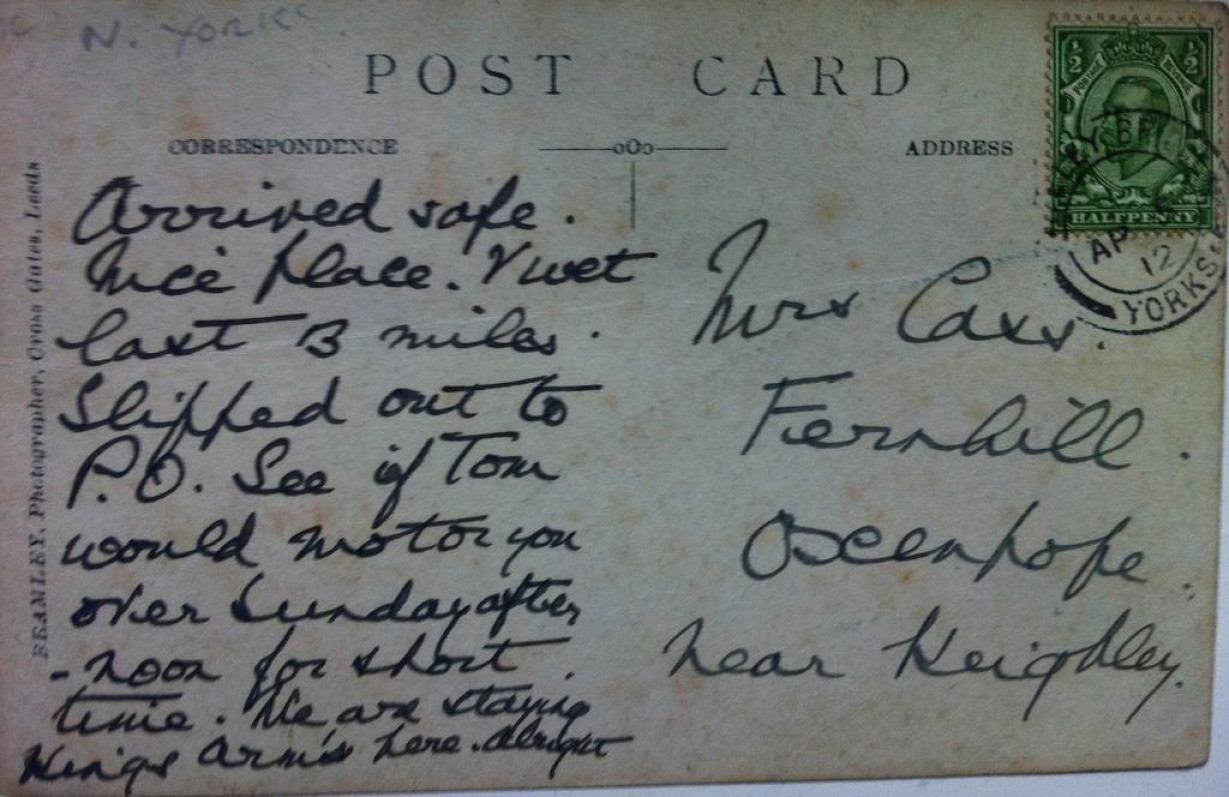 N. YORKS.
POST CARD
CORRESPONDENCE
ADDRESS
½ ½
POSTAGE REVENUE
HALFPENNY
AP
12
YORKS.
BRAMLEY, Photographer, Cross Gates, Leeds
Arrived safe.
Nice place. V wet
last 3 miles.
Slipped out to
P.O. See if Tom
would motor you
over Sunday after
-noon for short
time. We are staying
Kings Arms here. Alright
Mrs Cass.
Fernhill.
Oxenhope.
near Keighley.